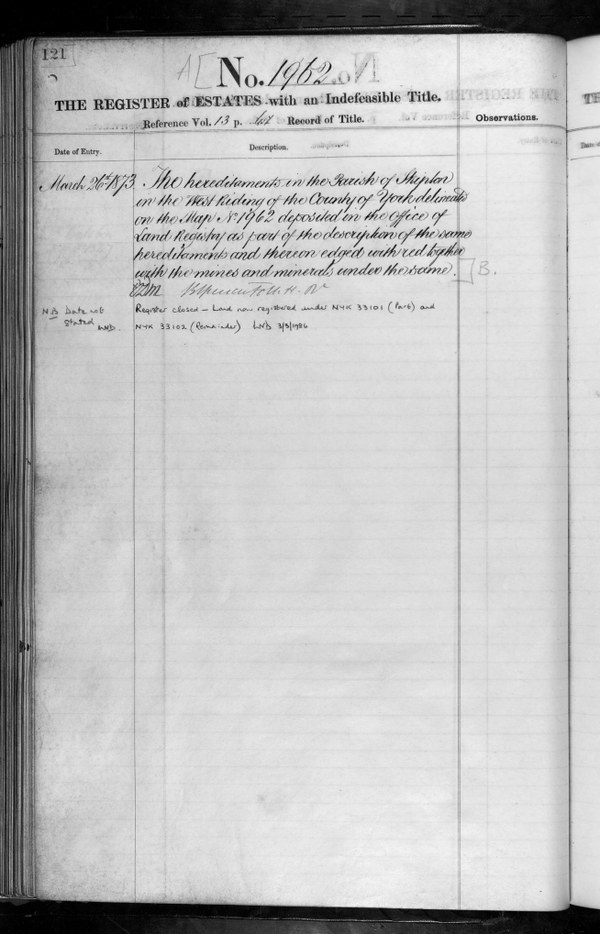 121
A[ No. 1962
THE REGISTER of ESTATES with an Indefeasible Title.
Reference Vol. 13 p. Record of Title.
Observations.
Date of Entry.
Description.
March 26th 1873. The hereditaments in the Parish of Skipton
in the West Riding of the County of York delineated
on the Map No. 1962 deposited in the Office of
Land Registry as part of the description of the same
hereditaments and thereon edged with red together
with the mines and minerals under the same. ] B.
N.B Date not stated LWB.
Register closed – Land now registered under NYK 33101 (Part) and
NYK 33102 (Remainder) LWB 3/3/1986